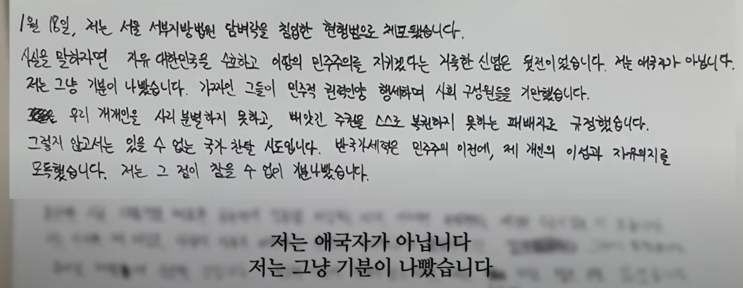 1월 18일, 저는 서울 서부지방법원 담벼락을 침입한 현행범으로 체포됐습니다.
사실을 말하자면 자유 대한민국을 수호하고 이땅의 민주주의를 지키겠다는 거룩한 신념은 뒷전이었습니다. 저는 애국자가 아닙니다.
저는 그냥 기분이 나빴습니다. 가짜인 그들이 민주적 권력인양 행세하며 사회 구성원들을 기만했습니다.
우리 개개인을 사리 분별하지 못하고, 빼앗긴 주권을 스스로 복권하지 못하는 패배자로 규정했습니다.
그렇지 않고서는 있을 수 없는 국가 찬탈 시도입니다. 반국가세력은 민주주의 이전에, 제 개인의 이성과 자유의지를
모독했습니다. 저는 그 점이 참을 수 없이 기분나빴습니다.
저는 애국자가 아닙니다
저는 그냥 기분이 나빴습니다